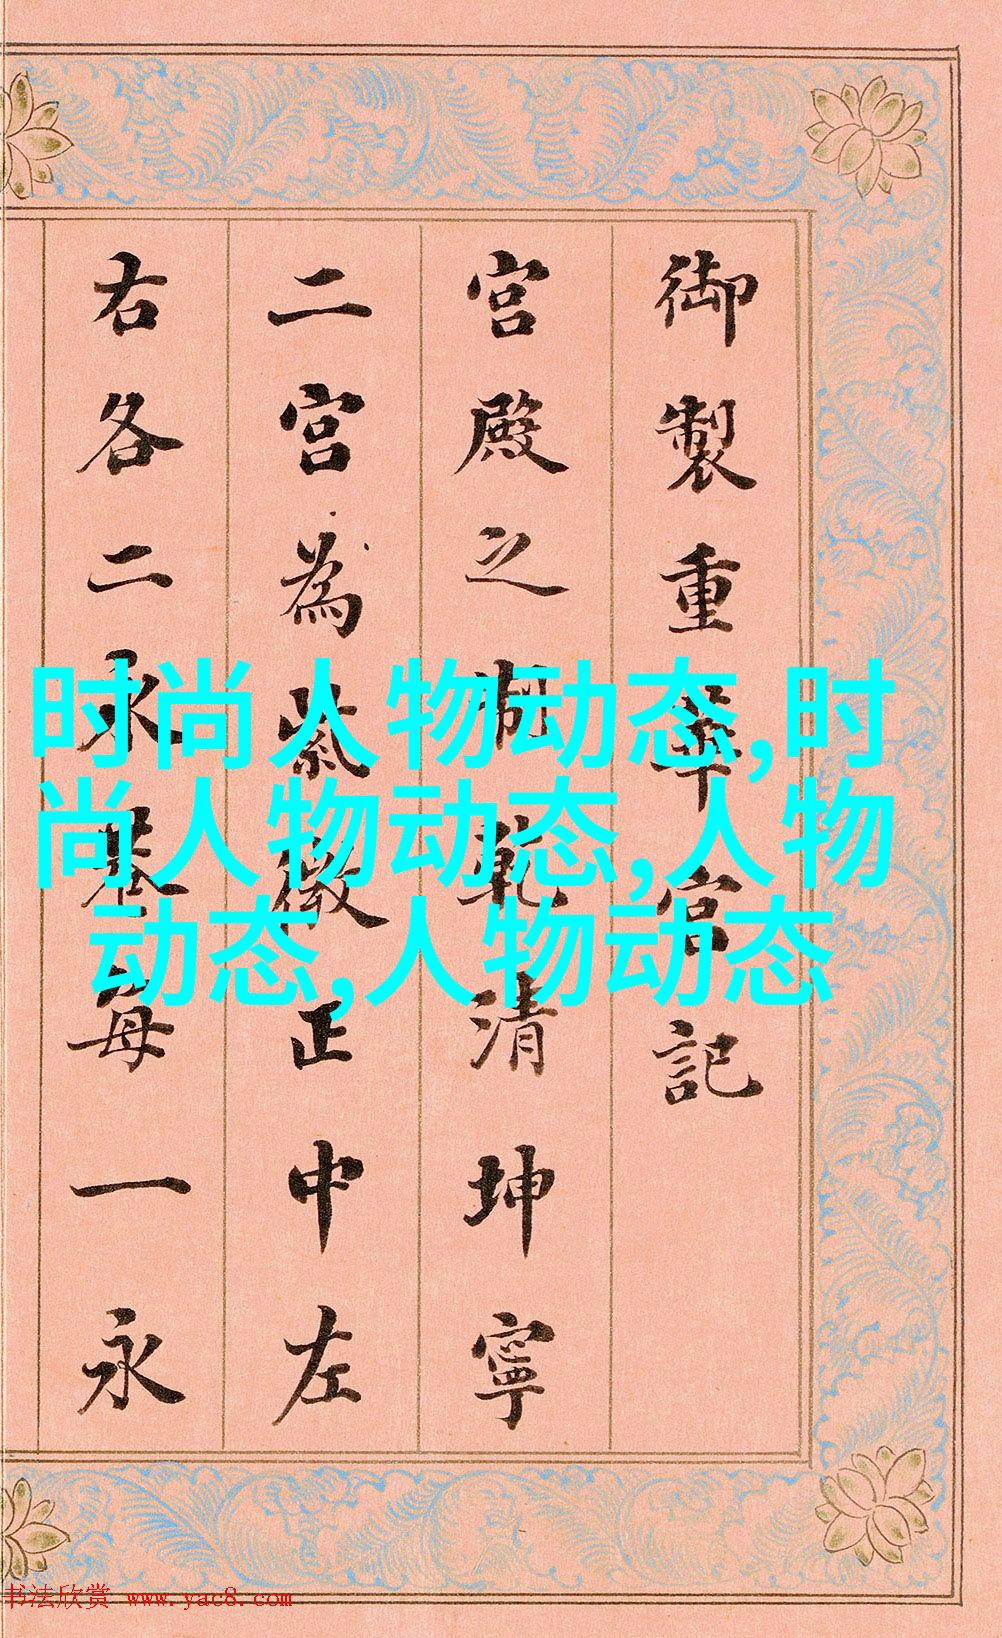 御製重華宮記
宮殿之制乾清坤寧
二宮為紫微正中左
右各二永巷每一永
时尚人物动态,时
尚人物动态,人物
动态,人物动态
书法欣赏 www.yac8.com